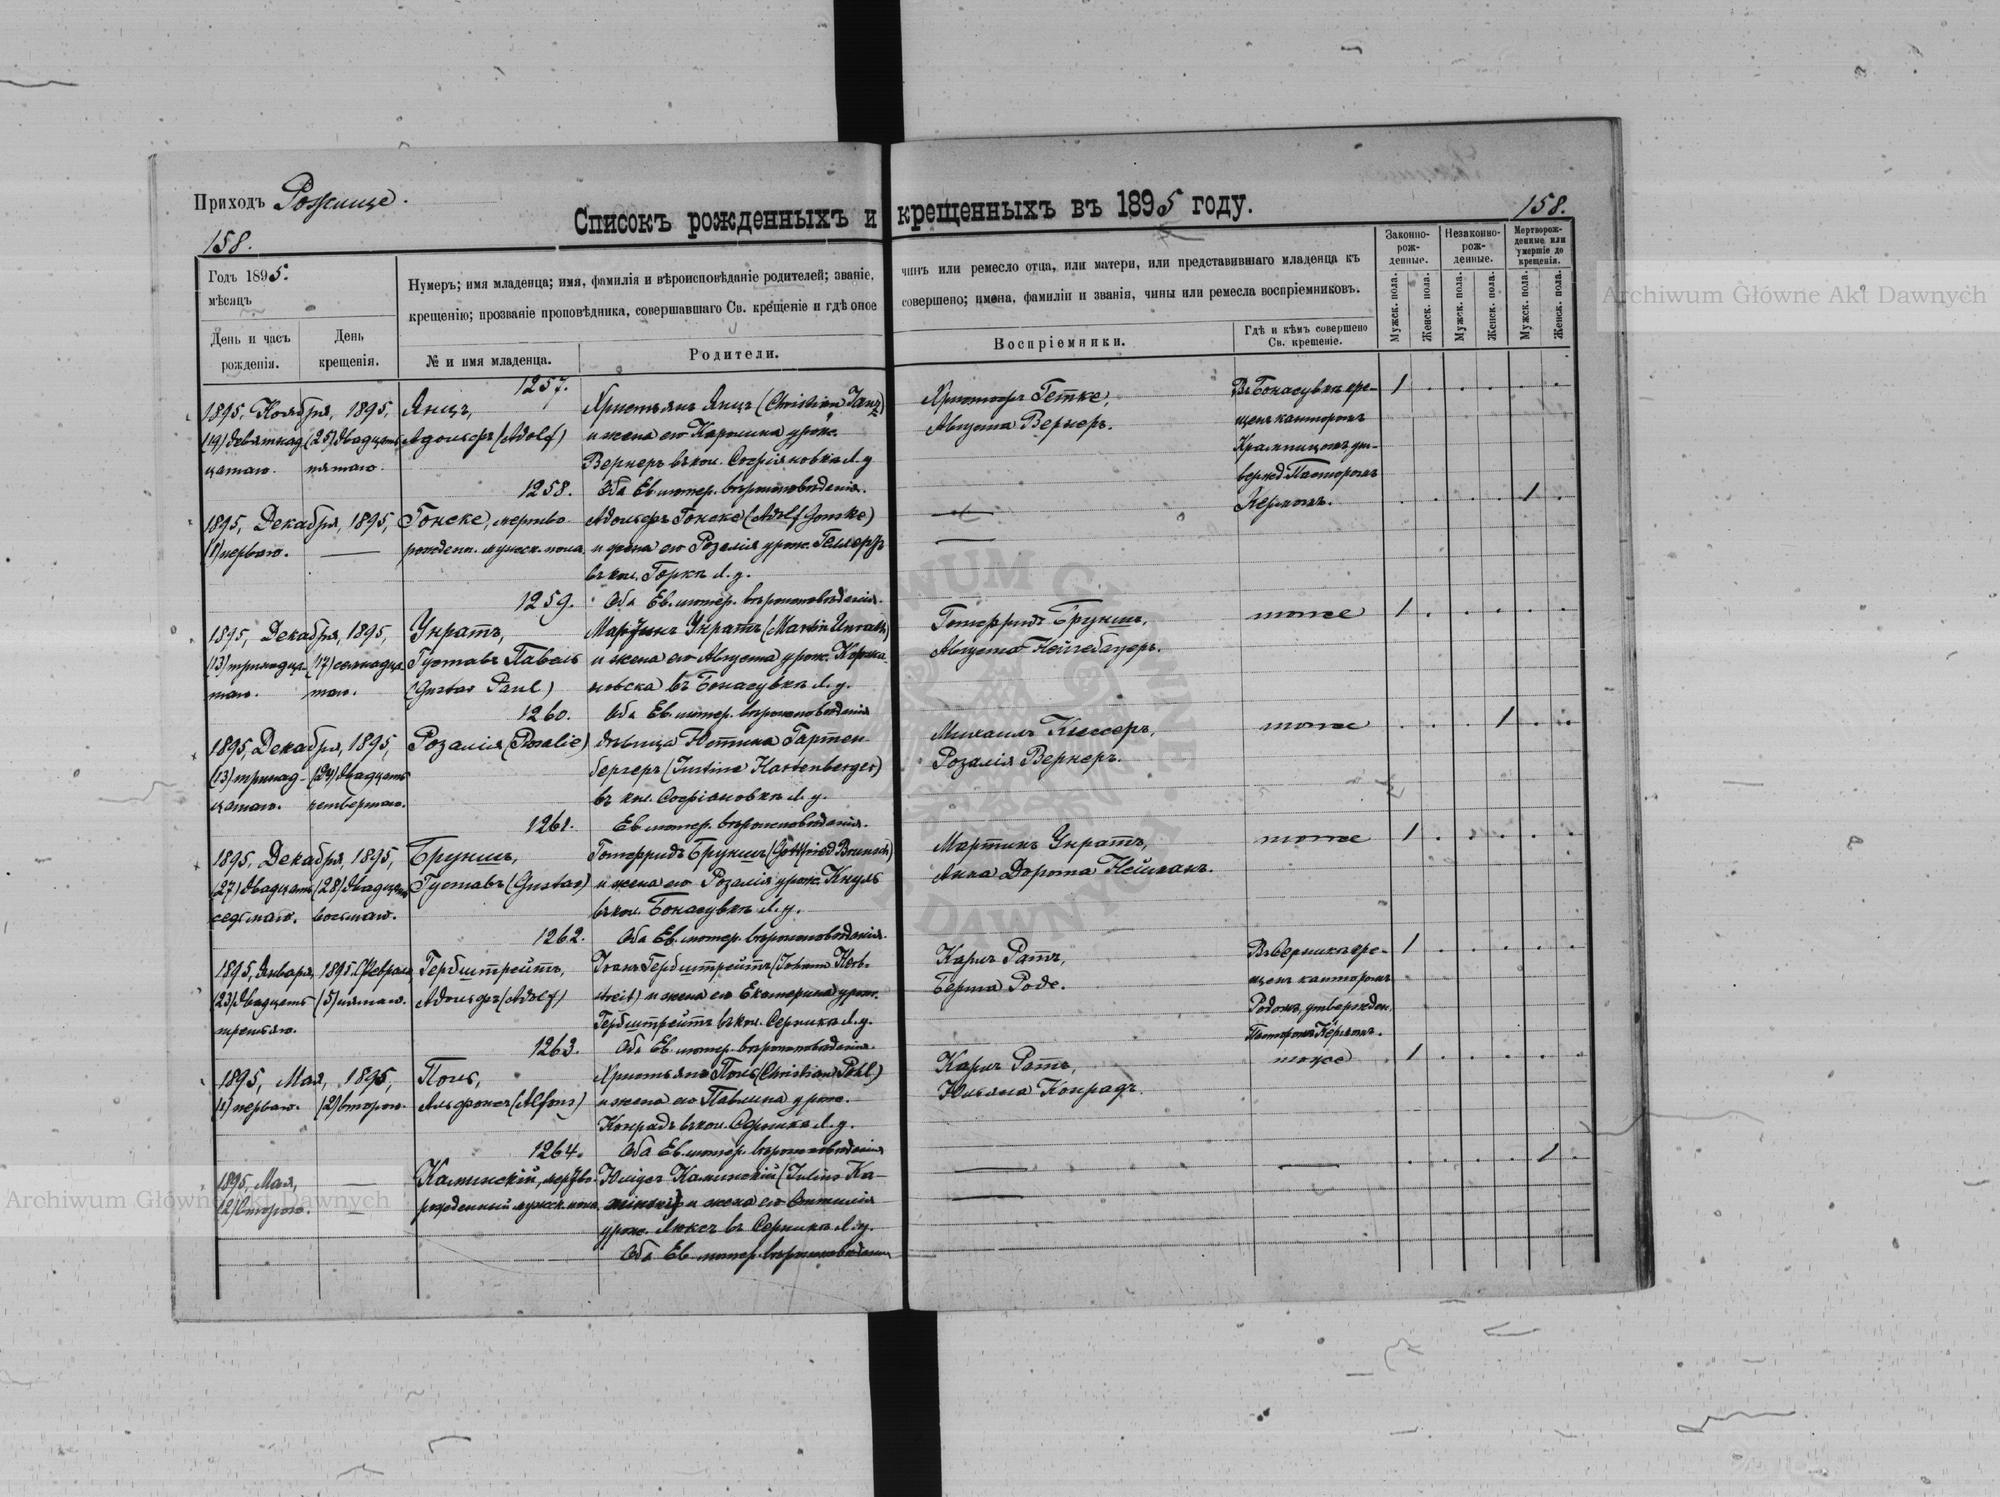 Приходъ Рожище.
158.
Списокъ рожденныхъ и крещенныхъ въ 1895 году.
158.
Годъ 1895.
мѣсяцъ
День и часъ рожденія.
День крещенія.
Нумеръ; имя младенца; имя, фамилія и вѣроисповѣданіе родителей; званіе, чинъ или ремесло отца, или матери, или представившаго младенца къ
крещенію; прозваніе проповѣдника, совершавшаго Св. крещеніе и гдѣ оное совершено; имена, фамиліи и званія, чины или ремесла воспріемниковъ.
№ и имя младенца.
Родители.
Воспріемники.
Гдѣ и кѣмъ совершено Св. крещеніе.
Законно-рож-денные.
Незаконно-рож-денные.
Мертворож-денные или умершіе до крещенія.
Мужск. пола.
Женск. пола.
Мужск. пола.
Женск. пола.
Мужск. пола.
Женск. пола.
1257.
1895, Ноября, 1895,
(19) девятнад- (25) двадцать
цатаго. пятаго.
Янцъ,
Адольфъ (Adolf)
Христьянъ Янцъ (Christian Janz)
и жена его Каролина урож.
Вернеръ въ кол. Софіяновкѣ Л. у.
Оба Ев. лютер. вѣроисповѣданія.
Христофъ Гетке,
Августа Вернеръ.
Въ Бонасувкѣ кре-
щенъ канторомъ
Крампицомъ, ут-
вержд. Пасторомъ
Керномъ.
1
1258.
1895, Декабря, 1895,
(1) перваго. —
Гонске, мертво
рожден. мужск. пола
Адольфъ Гонске (Adolf Gonske)
и жена его Розалія урож. Геллертъ
въ кол. Горкѣ Л. у.
Оба Ев. лютер. вѣроисповѣданія.
1
1259.
1895, Декабря, 1895,
(13) тринадца- (17) семнадца-
таго. таго.
Унратъ,
Густавъ Павелъ
(Gustav Paul)
Мартинъ Унратъ (Martin Unrath)
и жена его Августа урож. Коржа-
новска въ Бонасувкѣ Л. у.
Оба Ев. лютер. вѣроисповѣданія
Готфридъ Брукшъ,
Августа Нейгебауеръ.
тоже
1
1260.
1895, Декабря, 1895,
(13) тринад- (24) двадцать
цатаго. четвертаго.
Розалія (Rosalie)
дѣвица Юстина Гартен-
бергеръ (Justine Hartenberger)
въ кол. Софіановкѣ Л. у.
Ев. лютер. вѣроисповѣданія.
Михаилъ Клесеръ,
Розалія Вернеръ.
тоже
1
1261.
1895, Декабря, 1895,
(27) двадцать (28) двадцать
седьмаго. восьмаго.
Брункшъ,
Густавъ (Gustav)
Готфридъ Брункшъ (Gottfried Brunsch)
и жена его Розалія урож. Кнуль
въ кол. Бонасувкѣ Л. у.
Оба Ев. лютер. вѣроисповѣданія.
Мартинъ Унратъ,
Анна Дорота Нейманъ.
тоже
1
1262.
1895, Января, 1895, Февраля,
(23) двадцать (5) пятаго.
третьяго.
Гербштрейтъ,
Адольфъ (Adolf)
Іоанъ Гербштрейтъ (Johann Herb-
streit) и жена его Екатерина урож.
Гербштрейтъ въ кол. Серникѣ Л. у.
Оба Ев. лютер. вѣроисповѣданія.
Карлъ Ратъ,
Берта Роде.
Въ Серникѣ кре-
щенъ канторомъ
Родомъ, утвержден.
Пасторомъ Керномъ.
1
1263.
1895, Мая, 1895,
(1) перваго. (2) второго.
Поль,
Альфонсъ (Alfons)
Христьянъ Поль (Christian Pohl)
и жена его Павлина урож.
Конрадъ въ кол. Серникѣ Л. у.
Оба Ев. лютер. вѣроисповѣданія
Карлъ Ратъ,
Юльяна Конрадъ.
тоже
1
1264.
1895, Мая, —
(2) второго. —
Каминскій, мертво-
рожденный мужск. пола
Юліусъ Каминскій (Julius Ka-
minski) и жена его Оттилія
урож. Люксъ въ Серникѣ Л. у.
Оба Ев. лютер. вѣроисповѣданія
1
Archiwum Główne Akt Dawnych
Archiwum Główne Akt Dawnych